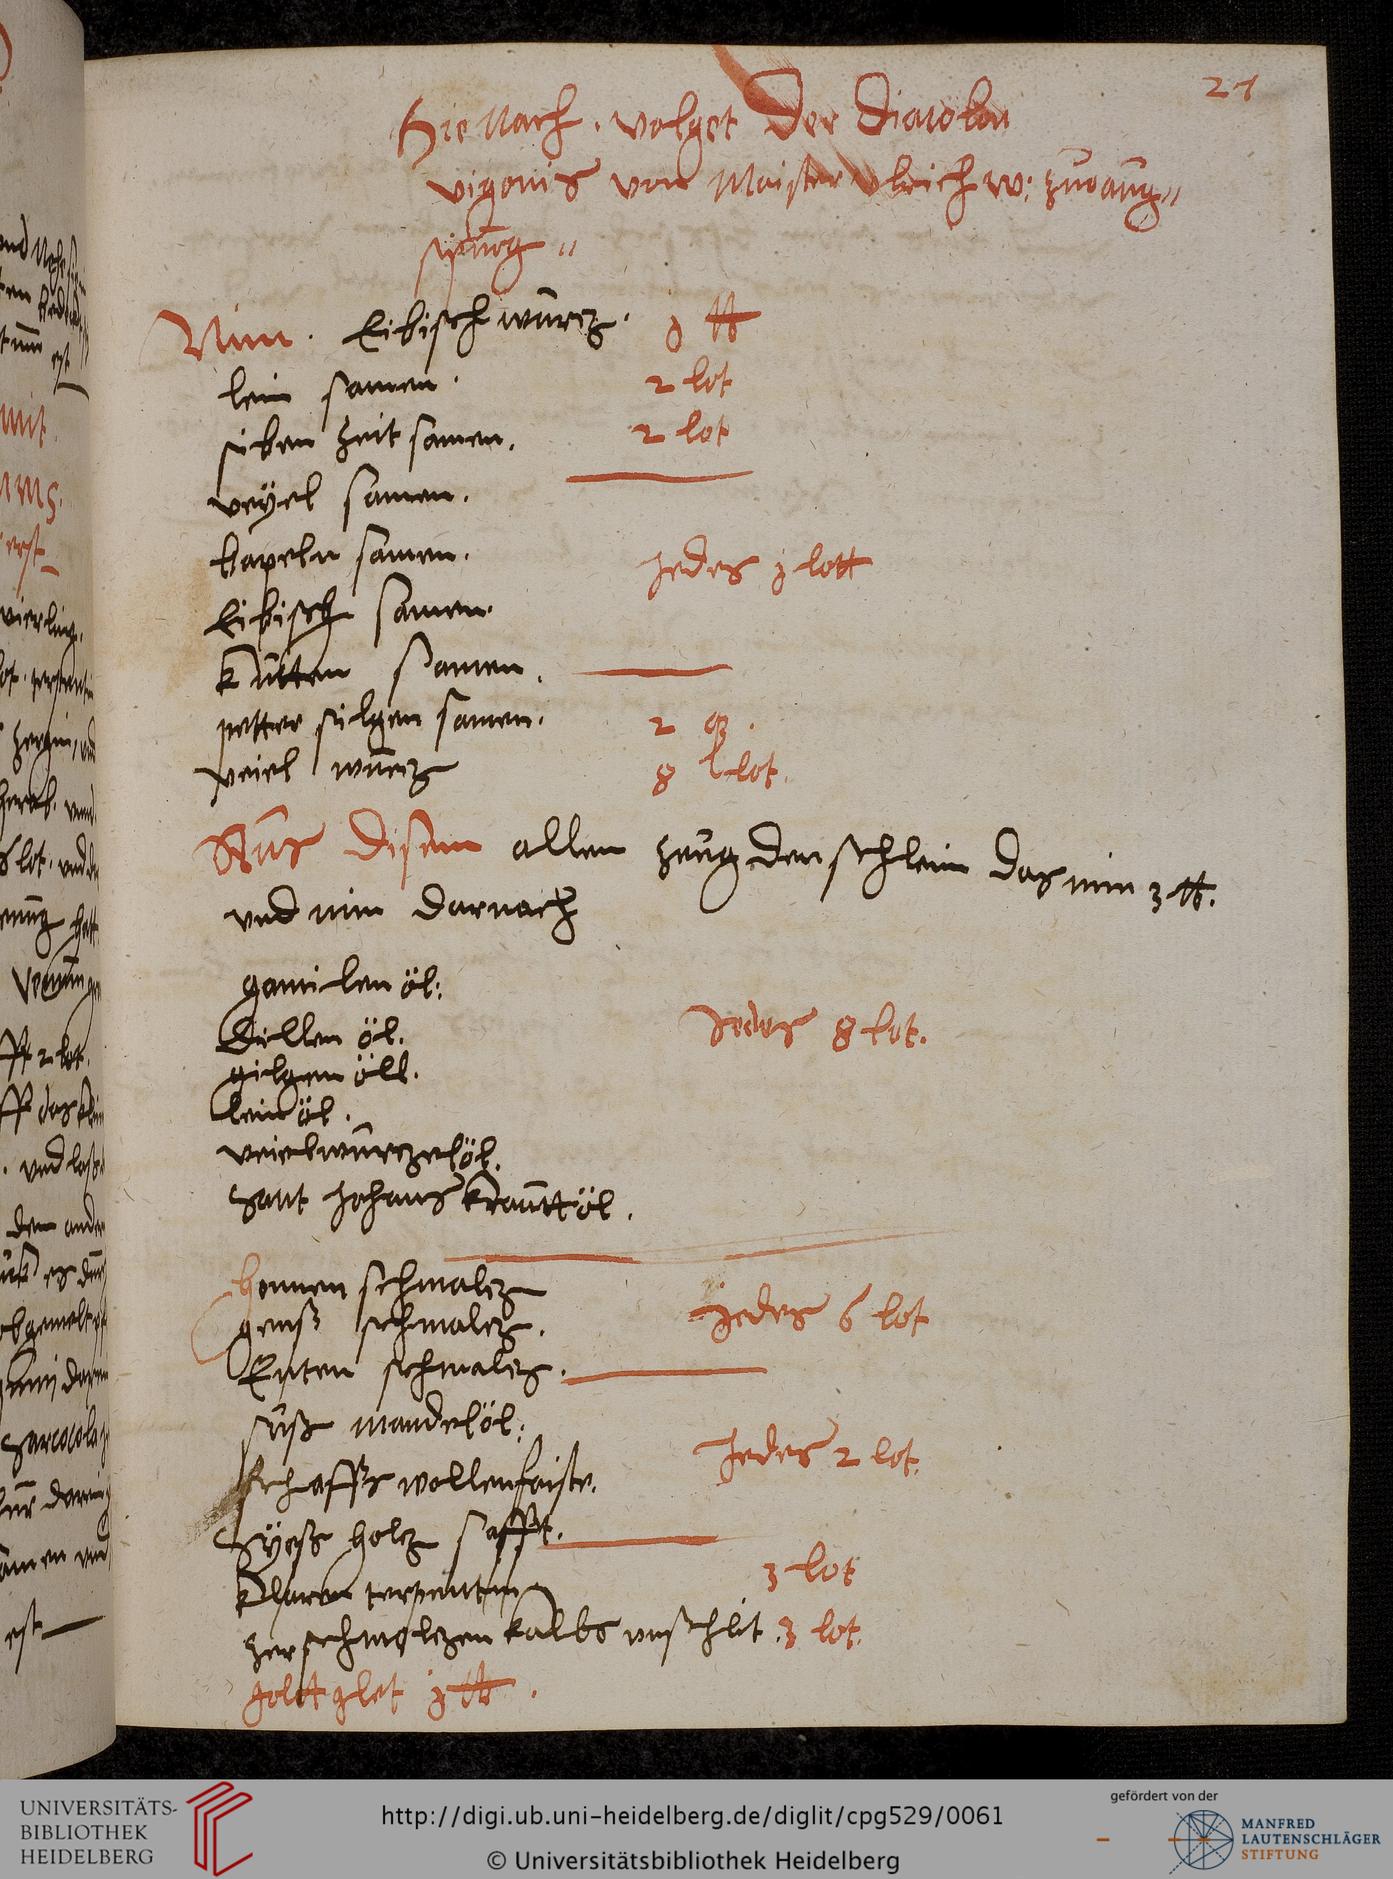 21
Hie Nach . volget Der Diacolon
vigonis von Maister Vlrich w: zu aug"
spurg "
Nim . Eibisch wurcz . j ℔
lein samen . 2 lot
siben zeit samen . 2 lot
veÿel samen .
bapeln samen . jedes j lott
Eibisch samen .
kutten samen .
petter silgen samen . 2 q .
veiel wurcz 8 lot .
Aus Disem allen zeug den schleim das nim 3 ℔ .
vnd nim darnach
gamilen öl :
Dillen öl . Jedes 8 lot .
gilgen öll .
lein öl .
veielwurczelöl .
Sant Johans krautt öl .
hennen schmalcz
genß schmalcz . jedes 6 lot
Enten schmalcz .
süß mandelöl :
schaffs wollenfaiste . Jedes 2 lot .
Sÿeß holcz safft .
klaren terpentin 3 lot
zerschmolczen kalbs vnschlit . 3 lot .
golt glet j ℔ .
UNIVERSITÄTS-
BIBLIOTHEK
HEIDELBERG
http://digi.ub.uni-heidelberg.de/diglit/cpg529/0061
© Universitätsbibliothek Heidelberg
gefördert von der
MANFRED
LAUTENSCHLÄGER
STIFTUNG